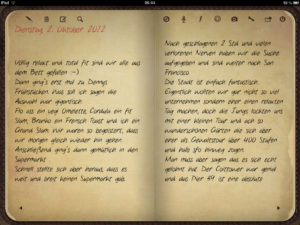 iPad
06:03
Dienstag 2. Oktober 2012
Völlig relaxt und total fit sind wir alle aus
dem Bett gefallen :-)
Dann ging's erst mal zu Dennys
Frühstücken. Was soll ich sagen die
Auswahl war gigantisch.
Po aß ein Veg. Omelette, Canada ein Fit
Slam, Branko ein French Toast und ich ein
Grand Slam. Wir waren so begeistert, dass
wir morgen gleich wieder hin gehen.
Anschließend ging's dann gemütlich in den
Supermarkt.
Schnell stellte sich aber heraus, dass es
weit und breit keinen Supermarkt gab.
Nach geschlagenen 2 Std und vielen
verlorenen Nerven haben wir die Suche
aufgegeben und sind weiter nach San
Francisco.
Die Stadt ist einfach fantastisch.
Eigentlich wollten wir gar nicht so viel
unternehmen sondern eher einen relaxten
Tag machen, doch die Jungs lockten uns
mit einer kleinen Tour und ach so
wunderschönen Gärten die sich aber
eher als Gewaltstour über 400 Stufen
und halb SFO hinweg zogen.
Man muss aber sagen das es sich echt
gelohnt hat. Der Coittower war genial
und das Pier 39 ist eine absolute